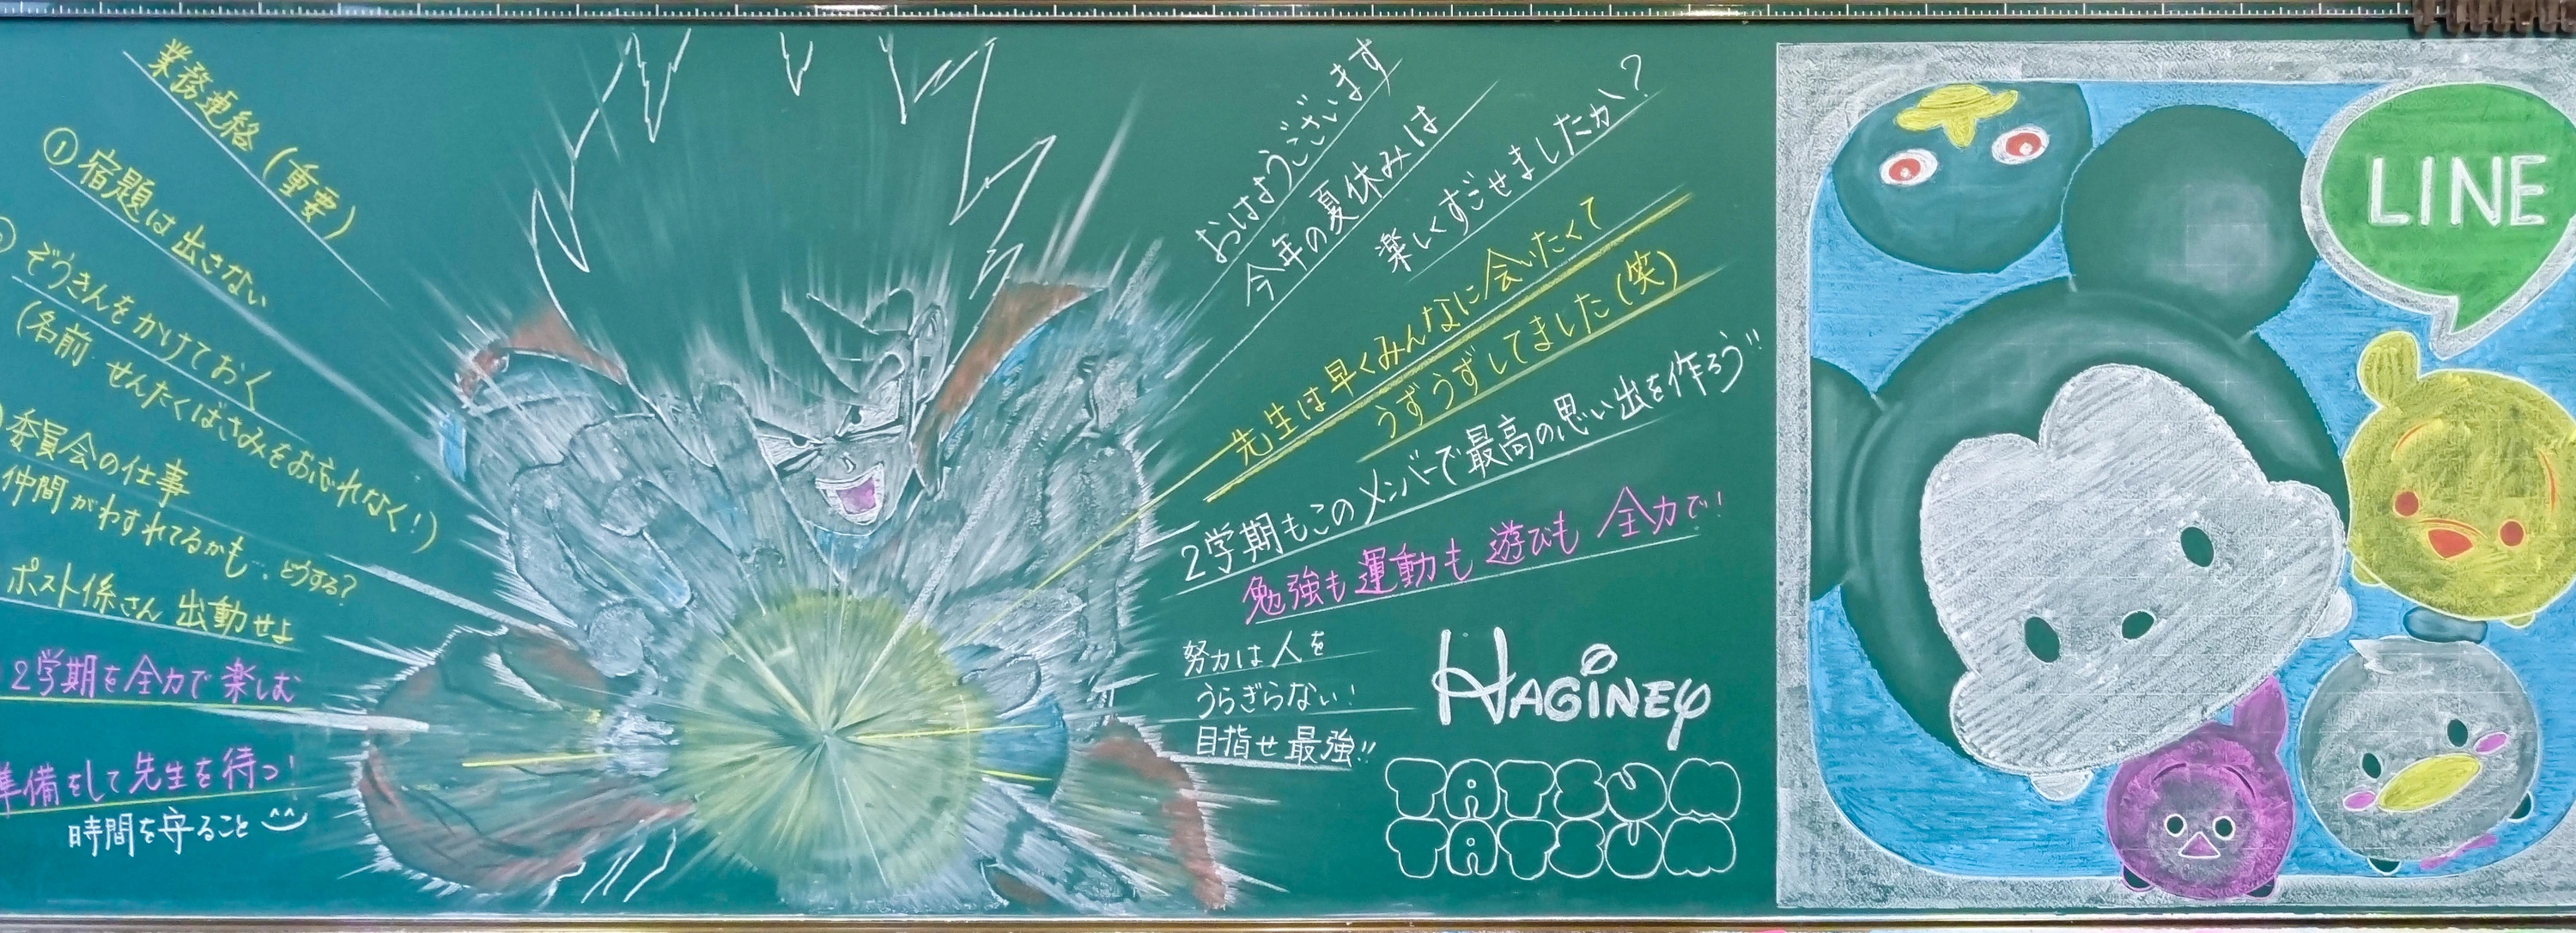 業務連絡(重要)
① 宿題は出さない
ぞうきんをかけておく
(名前・せんたくばさみをお忘れなく!)
委員会の仕事
仲間がわすれてるかも..どうする?
ポスト係さん 出動せよ
2学期を全力で楽しむ
準備をして先生を待つ!
時間を守ること
おはようございます
今年の夏休みは
楽しくすごせましたか?
先生は早くみんなに会いたくて
うずうずしてました(笑)
2学期もこのメンバーで最高の思い出を作ろう!!
勉強も運動も遊びも全力で!
努力は人を
うらぎらない!
目指せ最強!!
HAGINEY
TATSUM
TATSUM
LINE